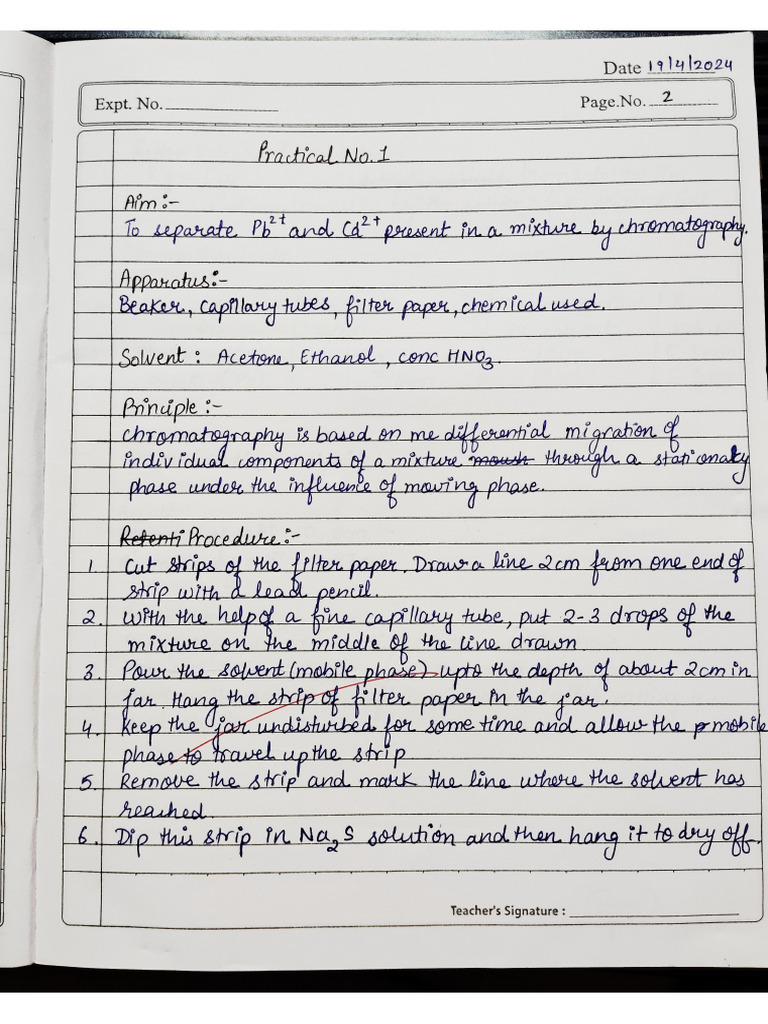 Date 19/4/2024
Expt. No.
Page.No. 2
Practical No. 1
Aim:-
To separate Pb²⁺ and Cd²⁺ present in a mixture by chromatography.
Apparatus:-
Beaker, capillary tubes, filter paper, chemical used.
Solvent : Acetone, Ethanol, conc HNO₃.
Principle :-
chromatography is based on me differential migration of
individual components of a mixture through a stationary
phase under the influence of moving phase.
Retenti Procedure:-
1. Cut strips of the filter paper. Draw a line 2cm from one end of
strip with a lead pencil.
2. With the help of a fine capillary tube, put 2-3 drops of the
mixture on the middle of the line drawn
3. Pour the solvent (mobile phase) upto the depth of about 2cm in
jar. Hang the strip of filter paper in the jar.
4. Keep the jar undisturbed for some time and allow the mobile
phase to travel up the strip
5. Remove the strip and mark the line where the solvent has
reached.
6. Dip this strip in Na₂S solution and then hang it to dry off.
Teacher's Signature :